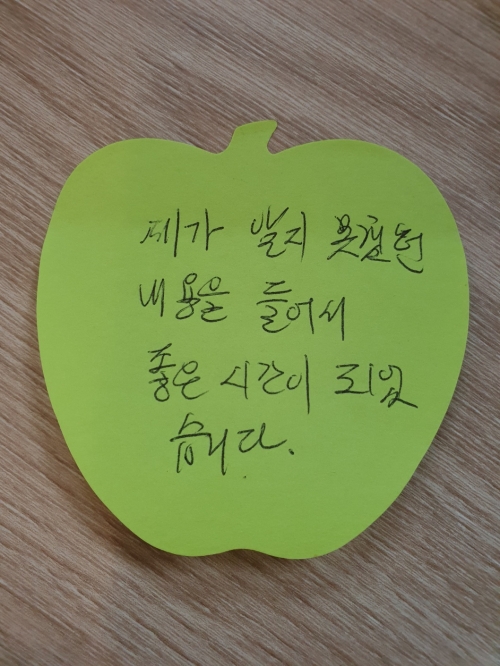 제가 알지 못했던
내용을 들어서
좋은 시간이 되었
습니다.